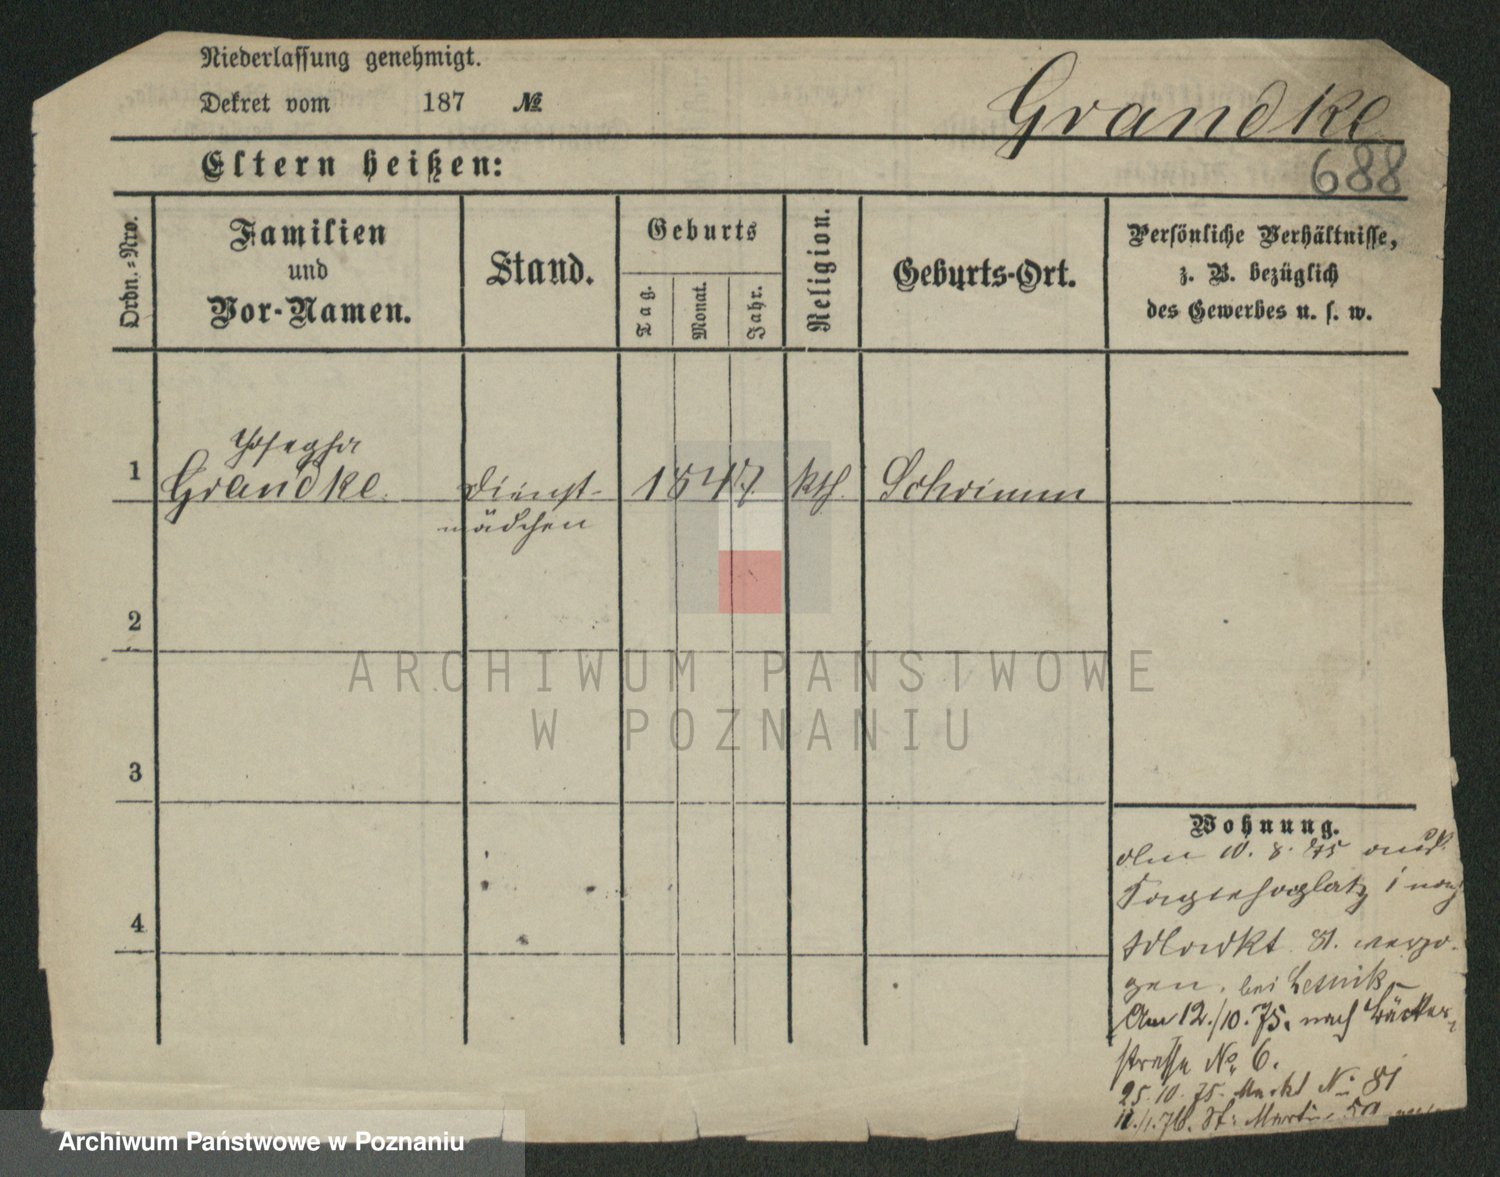 Niederlassung genehmigt.
Dekret vom 187 №
Grandke
688
Eltern heißen:
Ordn.=Nro.
Familien
und
Vor-Namen.
Stand.
Geburts
Tag.
Monat.
Jahr.
Religion.
Geburts-Ort.
Persönliche Verhältnisse,
z. B. bezüglich
des Gewerbes u. s. w.
1
Josepha
Grandke.
Dienst-
mädchen
1847
kth.
Schrimm
2
3
4
Wohnung.
10. 8. 75
Markt 81. verzo-
gen, bei
Am 12./10. 75. nach Bäcker-
strasse No 6.
25. 10. 75. Markt No 81
St. Martin
ARCHIWUM PAŃSTWOWE
W POZNANIU
Archiwum Państwowe w Poznaniu